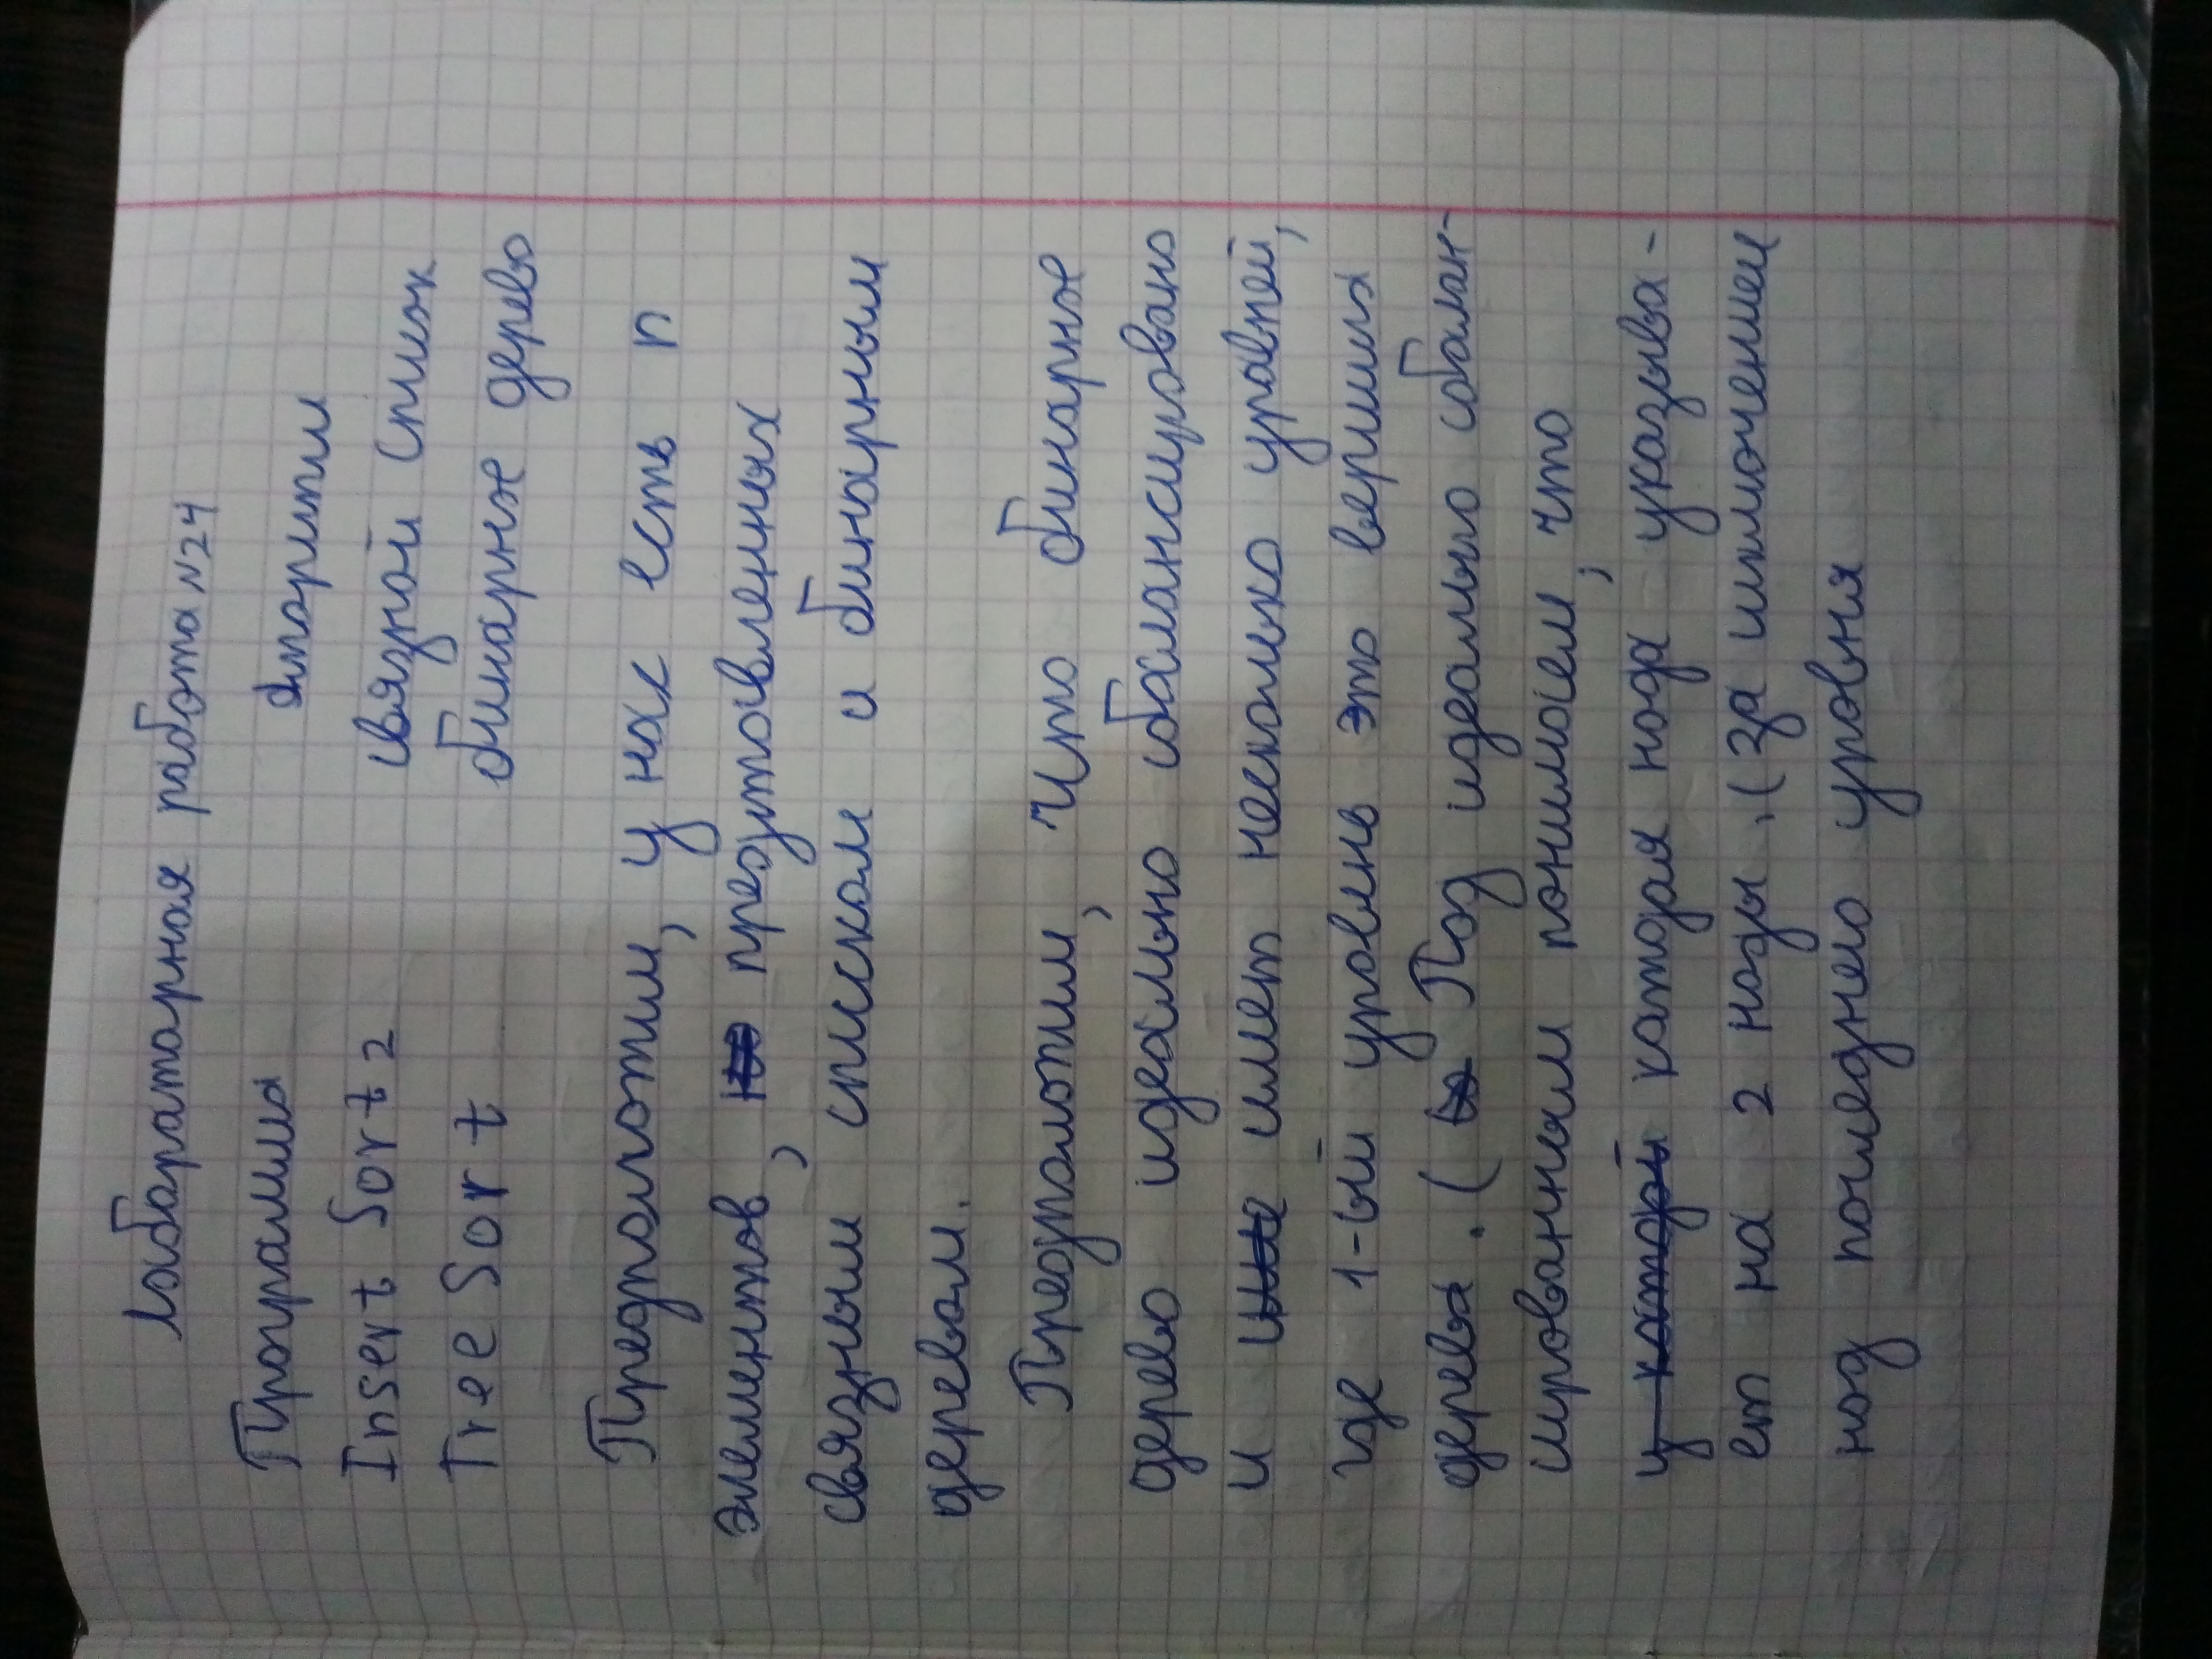 Лабораторная работа №24
Программа Алгоритм
Insert Sort 2 связной список
Tree Sort бинарное дерево
Предположим, у нас есть n
элементов, представленных
связным списком и бинарным
деревом.
Предположим, что бинарное
дерево идеально сбалансировано
и имеет несколько уровней,
где 1-ый уровень это вершина
дерева. ( Под идеально сбалан-
сированным понимаем, что
у каждой каждая нода указыва-
ет на 2 ноды. (за исключением
нод последнего уровня